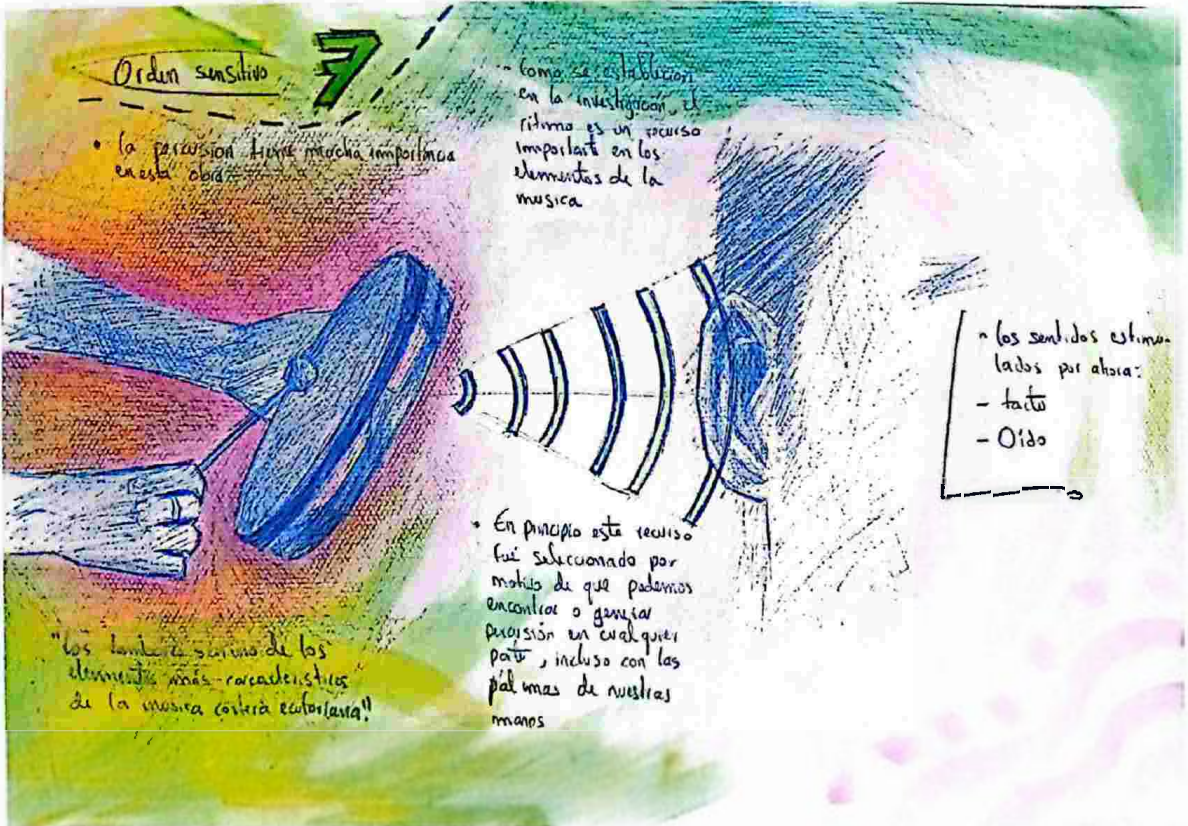 Orden sensitivo
7
• la percusion tiene mucha importancia
en esta obra
• Como se establecion
en la investigación, el
ritmo es un recurso
important en los
elementos de la
musica
• los sentidos estimu-
lados por ahora:
- tacto
- Oído
• En principio este recurso
fué seleccionado por
motivo de que podemos
encontrar o generar
percusión en cualquier
parte, incluso con las
palmas de nuestras
manos
"Los de los
elementos más caracteristicos
de la musica costera ecutoriana"